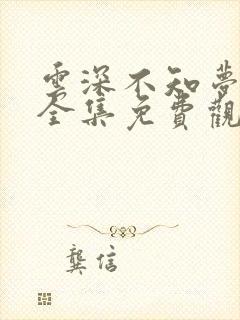 雲深不知夢
全集免費觀
龔信